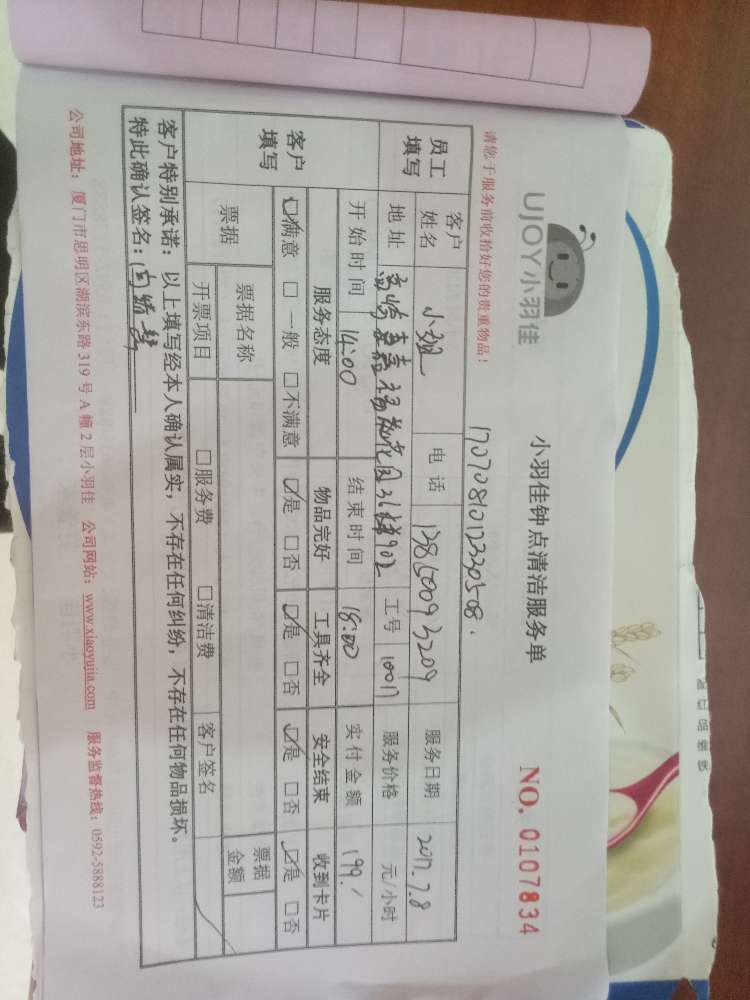 UJOY小羽佳
小羽佳钟点清洁服务单
NO. 0107834
请您于服务前收拾好您的贵重物品！
170708101233050８.
员工填写 客户姓名 小翅 电话 13850093209 服务日期 2017.7.8
地址 福苑花园31梯902 工号 10017 服务价格 元/小时
开始时间 14:00 结束时间 18:00 实付金额 199.
客户填写 服务态度 物品完好 工具齐全 安全结束 收到卡片
☑满意 □一般 □不满意 ☑是 □否 ☑是 □否 ☑是 □否 ☑是 □否
票据 票据名称 票据金额
开票项目 □服务费 □清洁费 客户签名
客户特别承诺：以上填写经本人确认属实，不存在任何纠纷，不存在任何物品损坏。
特此确认签名：
公司地址：厦门市思明区湖滨东路319号A幢2层小羽佳 公司网站：www.xiaoyujia.com 服务监督热线：0592-5888123